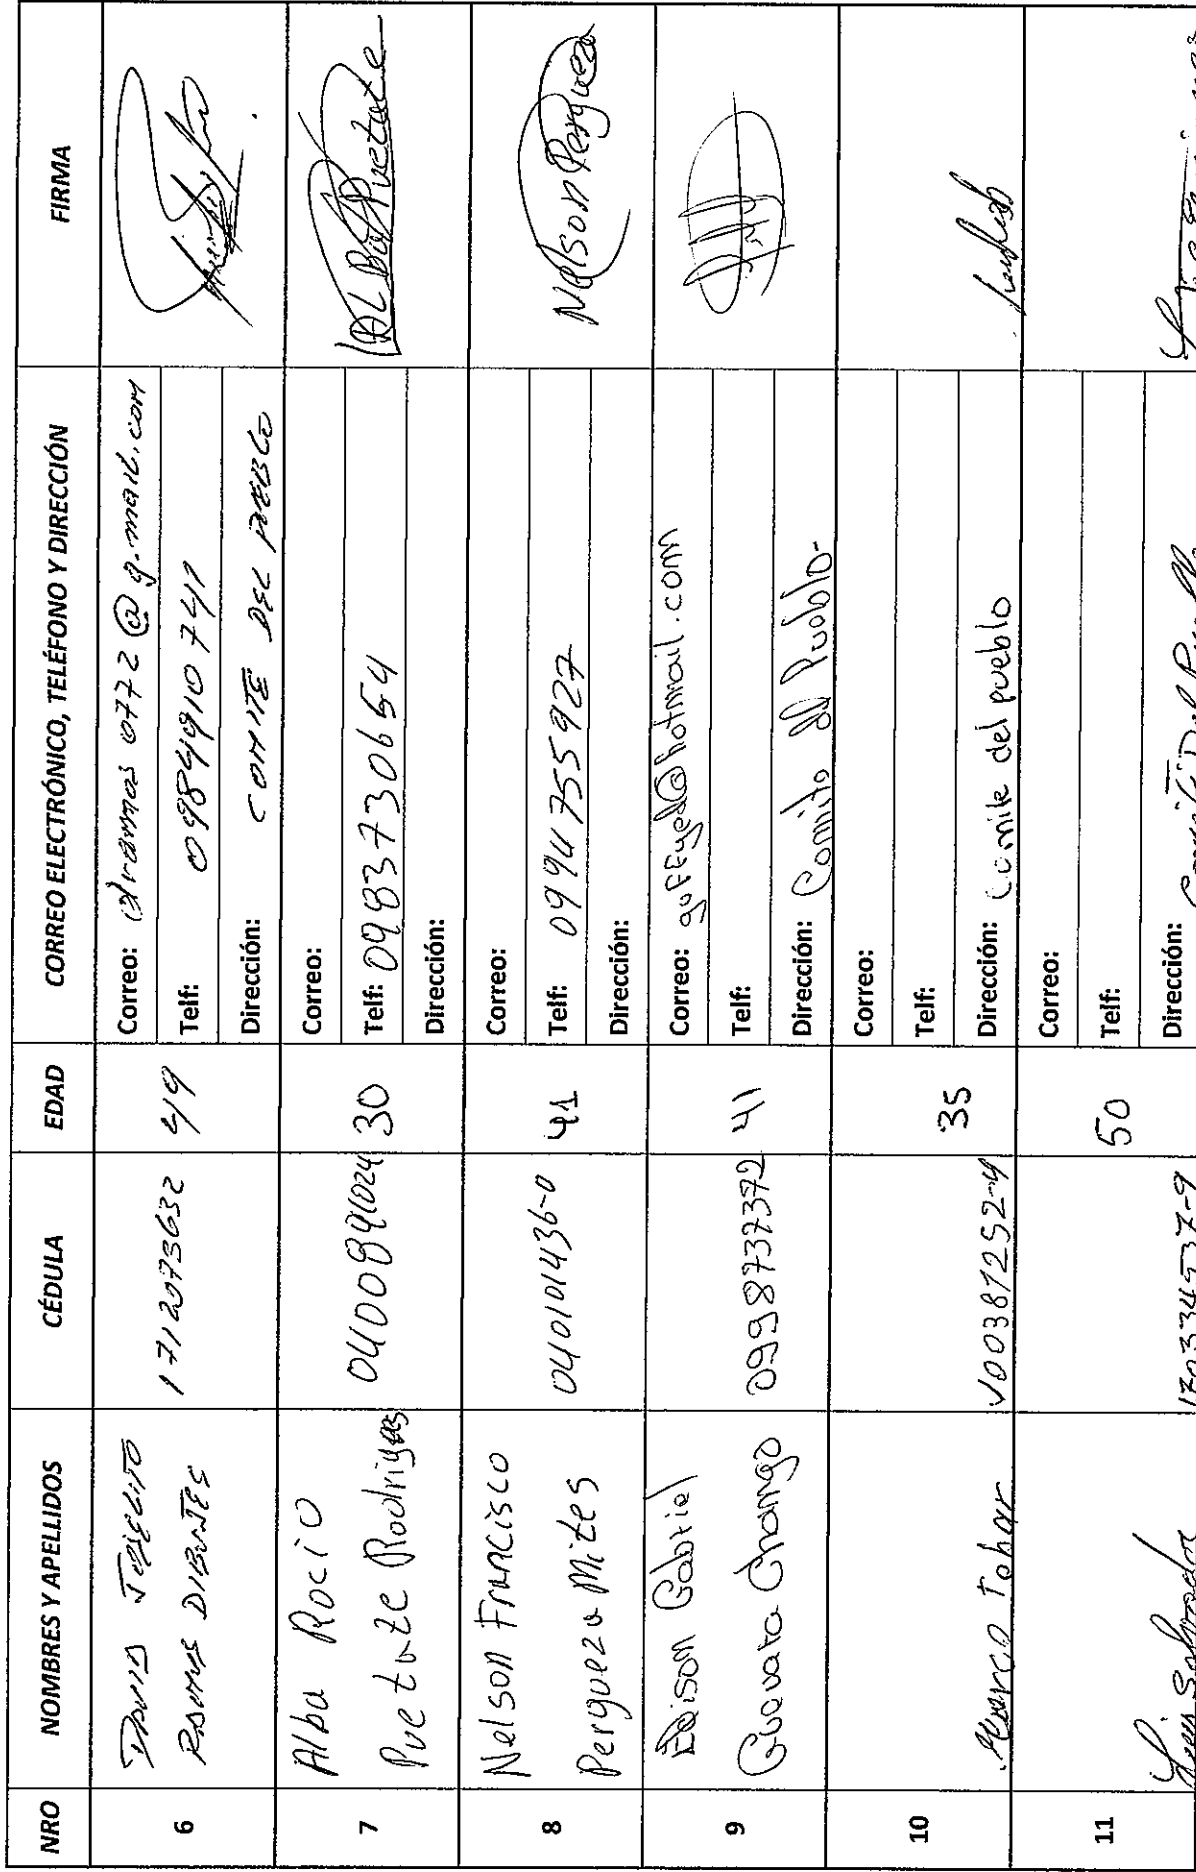 NRO NOMBRES Y APELLIDOS CÉDULA EDAD CORREO ELECTRÓNICO, TELÉFONO Y DIRECCIÓN FIRMA
6
DAVID
RAMOS
1712073632
49
Correo: 0772@g.mail.com
Telf: 0984910741
Dirección: COMITE DEL PUEBLO
7
Alba Rocio
Puetate Rodriguez
0400891024
30
Correo:
Telf: 0983730654
Dirección:
ALBA Puetate
8
Nelson Francisco
Pergueza Mites
040101436-0
41
Correo:
Telf: 0994755927
Dirección:
Nelson Pergueza
9
Edison Gabriel
Guevara Chango
0998737372
41
Correo: goffyed@hotmail.com
Telf:
Dirección: Comite del Pueblo-
10
Marco Tobar
35
Correo:
Telf:
Dirección: Comite del pueblo
11
Luis Salvador
50
Correo:
Telf:
Dirección: Comité Del Pueblo